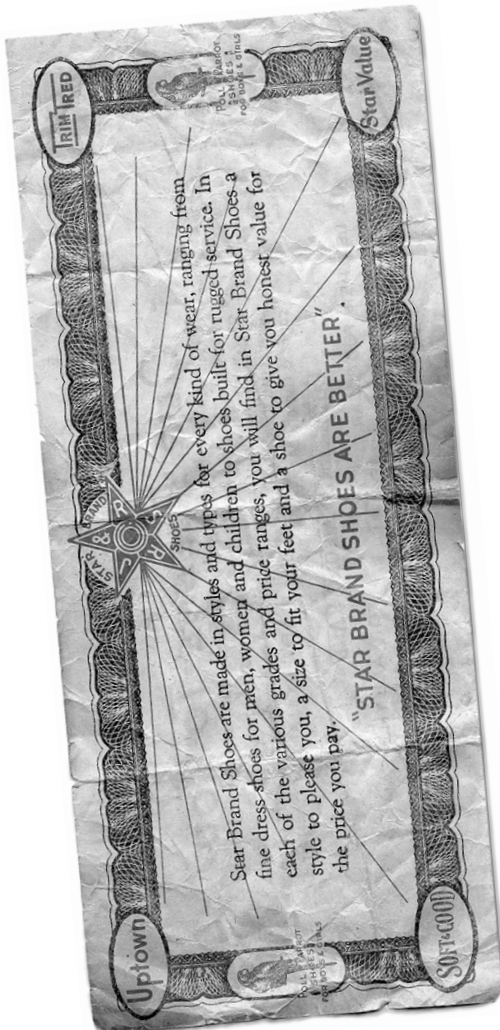 Uptown
STAR BRAND SHOES
TRIM TRED
POLL PARROT
SHOES
FOR BOYS & GIRLS
POLL PARROT
SHOES
FOR BOYS & GIRLS
Star Brand Shoes are made in styles and types for every kind of wear, ranging from
fine dress shoes for men, women and children to shoes built for rugged service. In
each of the various grades and price ranges, you will find in Star Brand Shoes a
style to please you, a size to fit your feet and a shoe to give you honest value for
the price you pay.
"STAR BRAND SHOES ARE BETTER".
SOFT&GOOD
Star Value